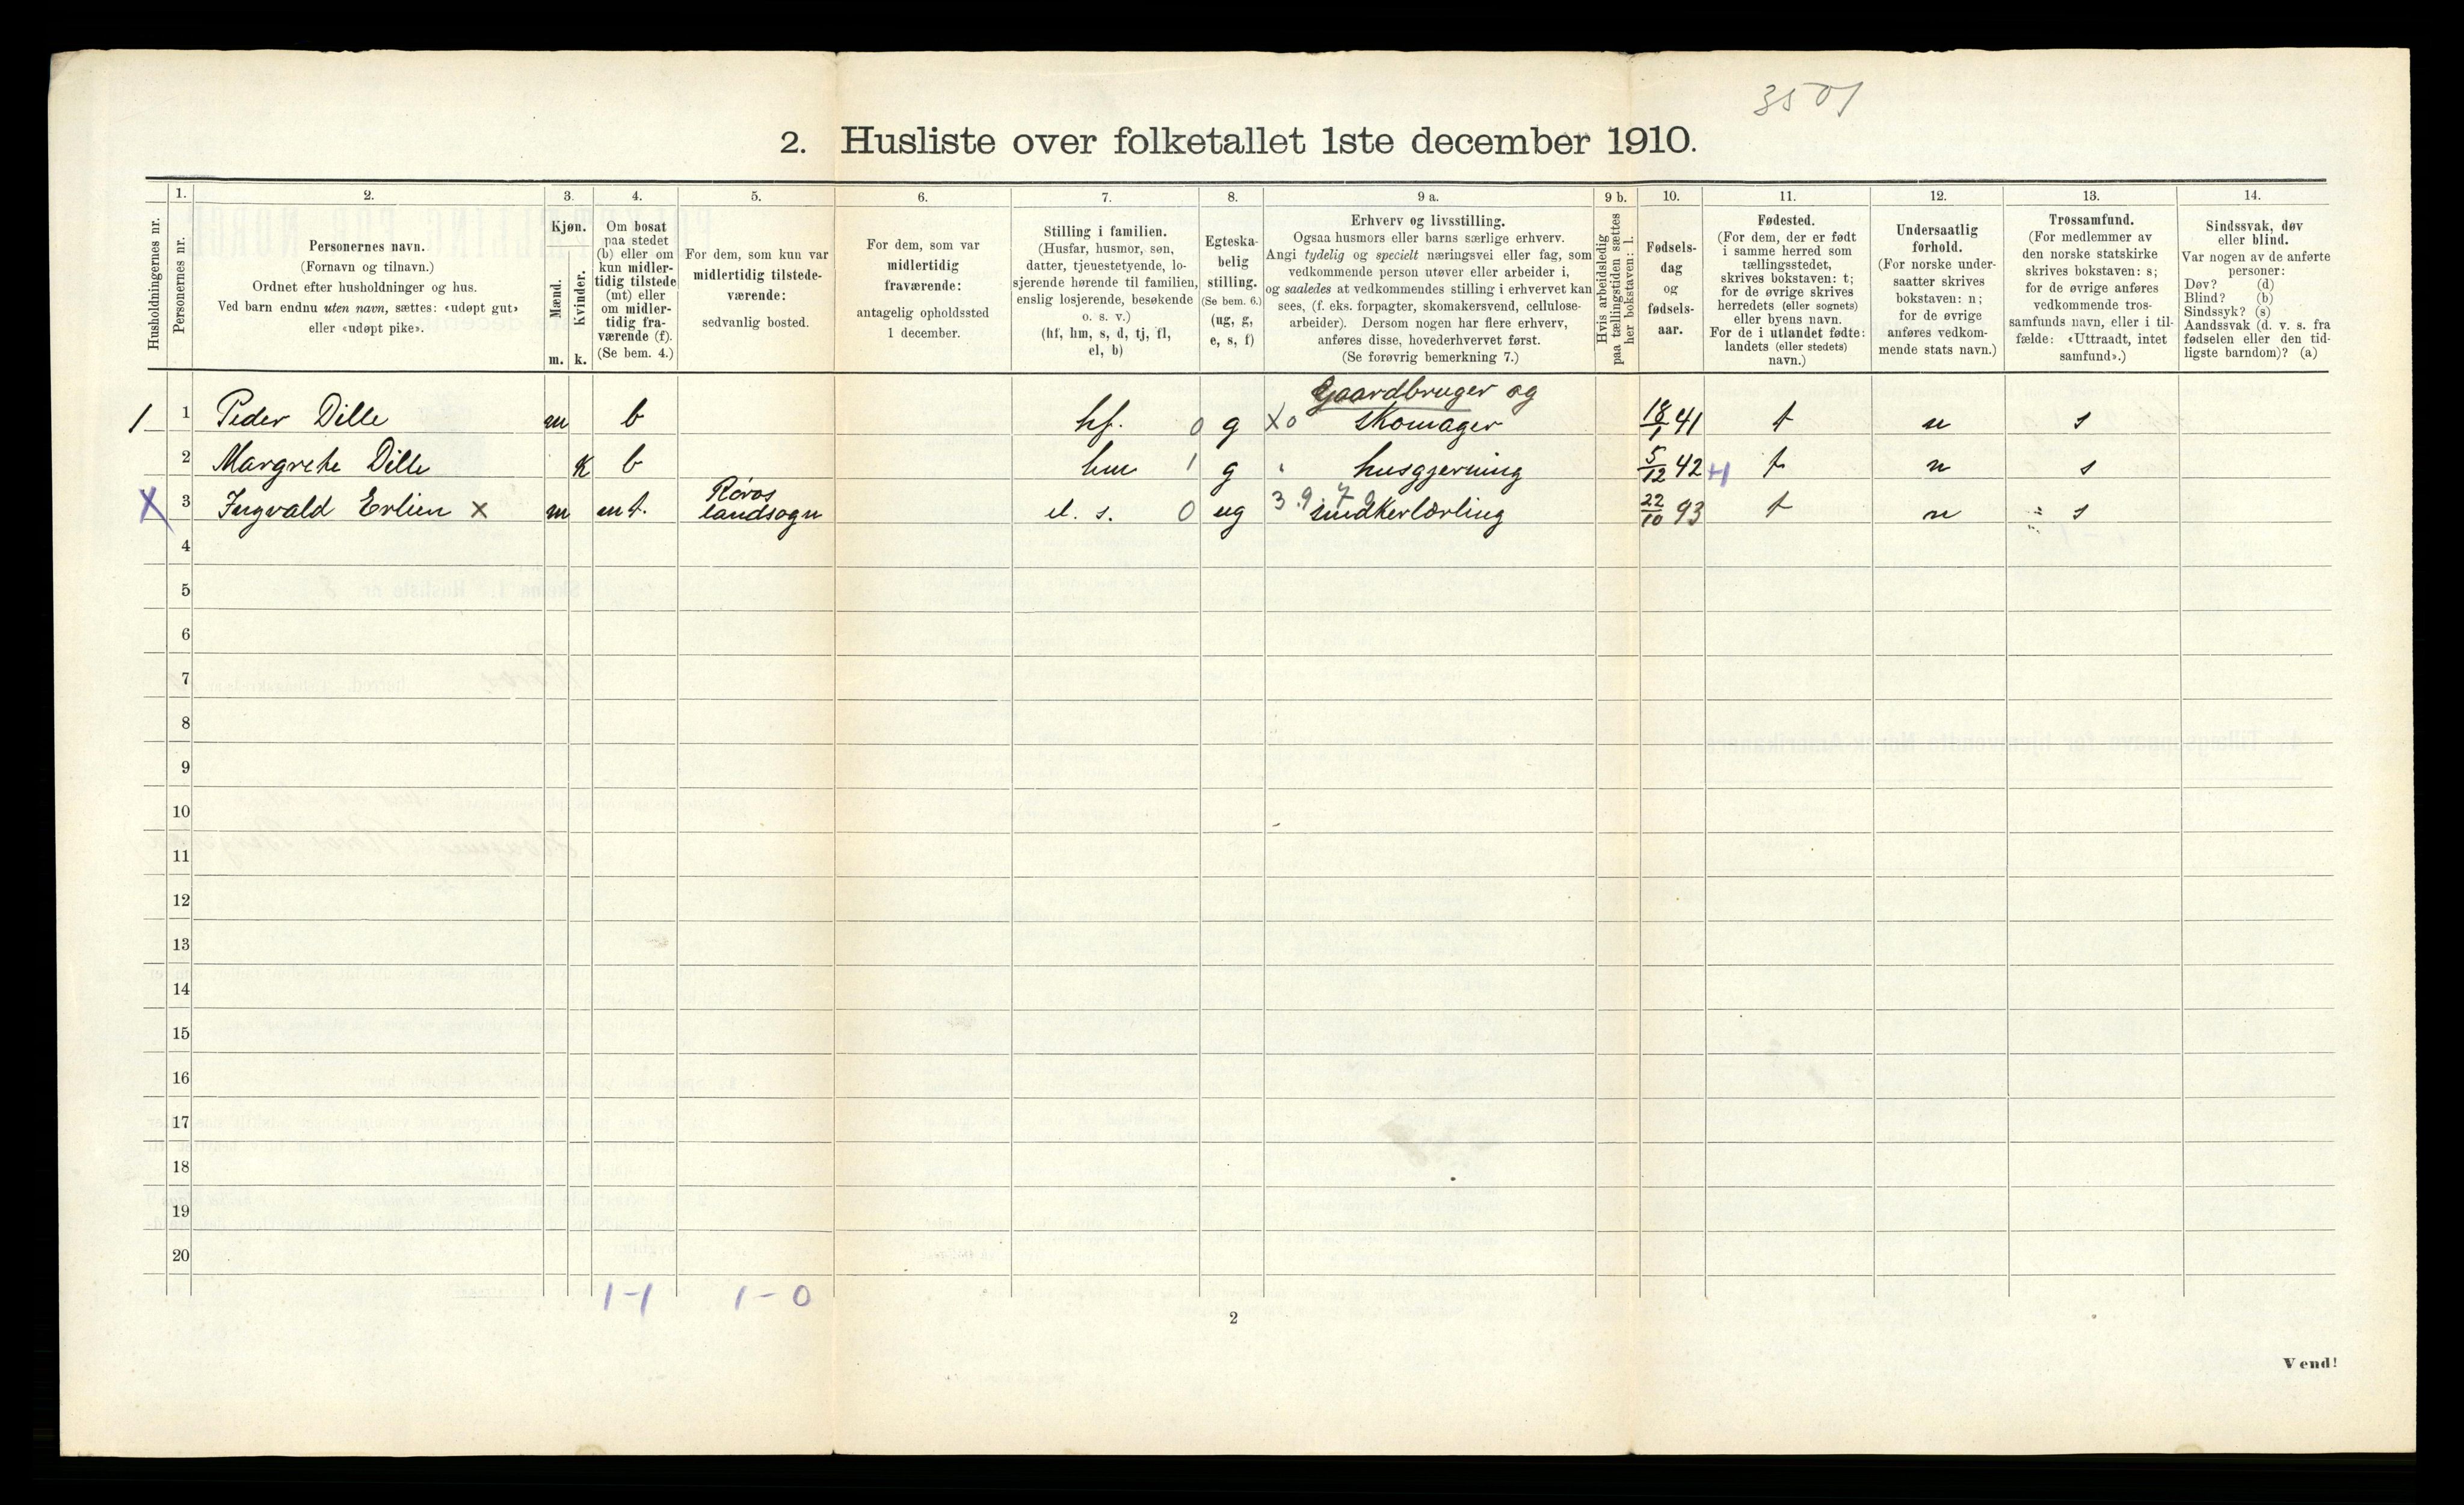 3501
2. Husliste over folketallet 1ste december 1910.
Husholdningernes nr.
1.
Personernes nr.
2.
Personernes navn.
(Fornavn og tilnavn.)
Ordnet efter husholdninger og hus.
Ved barn endnu uten navn, sættes: «udøpt gut»
eller «udøpt pike».
3.
Kjøn.
Mænd.
Kvinder.
m. k.
4.
Om bosat
paa stedet
(b) eller om
kun midler-
tidig tilstede
(mt) eller
om midler-
tidig fra-
værende (f).
(Se bem. 4.)
5.
For dem, som kun var
midlertidig tilstede-
værende:
sedvanlig bosted.
6.
For dem, som var
midlertidig
fraværende:
antagelig opholdssted
1 december.
7.
Stilling i familien.
(Husfar, husmor, søn,
datter, tjenestetyende, lo-
sjerende hørende til familien,
enslig losjerende, besøkende
o. s. v.)
(hf, hm, s, d, tj, fl,
el, b)
8.
Egteska-
belig
stilling.
(Se bem. 6.)
(ug, g,
e, s, f)
9 a.
Erhverv og livsstilling.
Ogsaa husmors eller barns særlige erhverv.
Angi tydelig og specielt næringsvei eller fag, som
vedkommende person utøver eller arbeider i,
og saaledes at vedkommendes stilling i erhvervet kan
sees, (f. eks. forpagter, skomakersvend, cellulose-
arbeider). Dersom nogen har flere erhverv,
anføres disse, hovederhvervet først.
(Se forøvrig bemerkning 7.)
9 b.
Hvis arbeidsledig
paa tællingstiden sættes
her bokstaven: l.
10.
Fødsels-
dag
og
fødsels-
aar.
11.
Fødested.
(For dem, der er født
i samme herred som
tællingsstedet,
skrives bokstaven: t;
for de øvrige skrives
herredets (eller sognets)
eller byens navn.
For de i utlandet fødte:
landets (eller stedets)
navn.)
12.
Undersaatlig
forhold.
(For norske under-
saatter skrives
bokstaven: n;
for de øvrige
anføres vedkom-
mende stats navn.)
13.
Trossamfund.
(For medlemmer av
den norske statskirke
skrives bokstaven: s;
for de øvrige anføres
vedkommende tros-
samfunds navn, eller i til-
fælde: «Uttraadt, intet
samfund».)
14.
Sindssvak, døv
eller blind.
Var nogen av de anførte
personer:
Døv? (d)
Blind? (b)
Sindssyk? (s)
Aandssvak (d. v. s. fra
fødselen eller den tid-
ligste barndom)? (a)
Gaardbruger og
1 1 Peder Dille m b hf. 0 g X0 skomager 18/1 41 t n s
2 Margrete Dille k b hm 1 g husgjerning 5/12 42 +1 t n s
Röros
X 3 Ingvald Erlien x m mt. landsogn el. s. 0 ug 3.9.79 smedkerlærling 22/10 93 t n s
4
5
6
7
8
9
10
11
12
13
14
15
16
17
18
19
20
1-1 1-0
2
Vend!